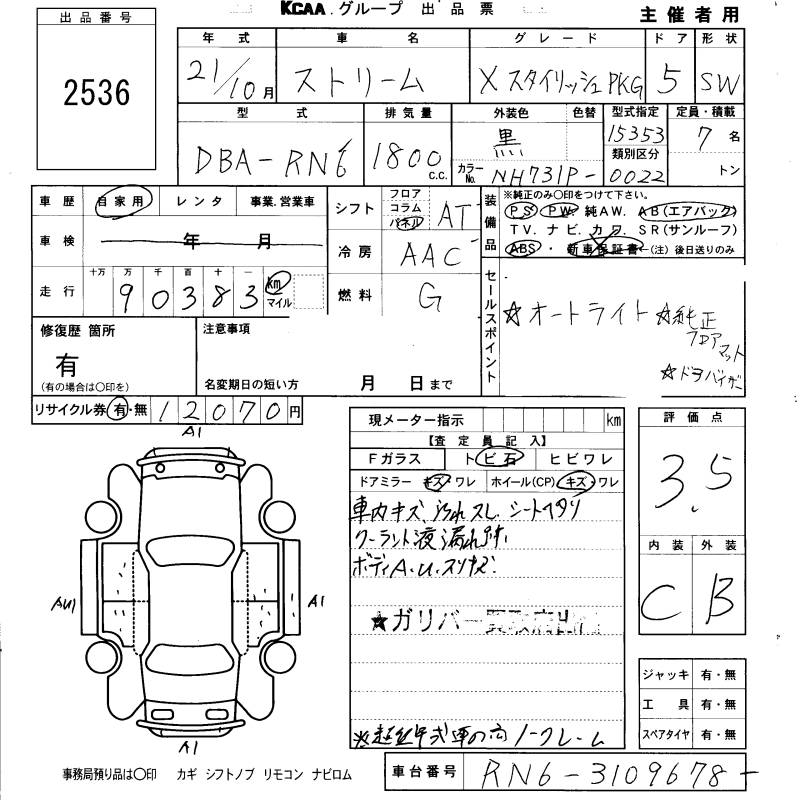 KCAA.グループ 出品票
主催者用
出品番号
2536
年式 車名 グレード ドア 形状
21/10月 ストリーム X スタイリッシュPKG 5 SW
型式 排気量 外装色 色替 型式指定 定員・積載
DBA-RN6 1800 c.c. 黒 15353 7名
カラーNo. NH731P- 類別区分 0022 トン
車歴 自家用 レンタ 事業.営業車
車検 年 月
走行 十万 万 千 百 十 一
90383 km マイル
シフト フロア コラム パネル AT
冷房 AAC
燃料 G
装備品 ※純正のみ〇印をつけて下さい。
PS PW 純AW. AB(エアバック)
TV. ナビ. カワ. SR(サンルーフ)
ABS・新車保証書←(注)後日送りのみ
セールスポイント
☆オートライト ☆純正フロアマット
☆ドアバイザー
修復歴 箇所 注意事項
有
(有の場合は〇印を) 名変期日の短い方 月 日まで
リサイクル券 有・無 12070円
現メーター指示 km
【査定員記入】
Fガラス ト ビ石 ヒビワレ
ドアミラー キズ・ワレ ホイール(CP) キズ・ワレ
車内キズ、汚れ スレ シートヘタリ
クーラント液漏れ跡
ボディA.U.スリキズ
★ガリバー
※超低年式車の為ノークレーム
評価点
3.5
内装 外装
C B
ジャッキ 有・無
工具 有・無
スペアタイヤ 有・無
A1
AU1
A1
A1
事務局預り品は〇印 カギ シフトノブ リモコン ナビロム
車台番号 RN6-3109678-